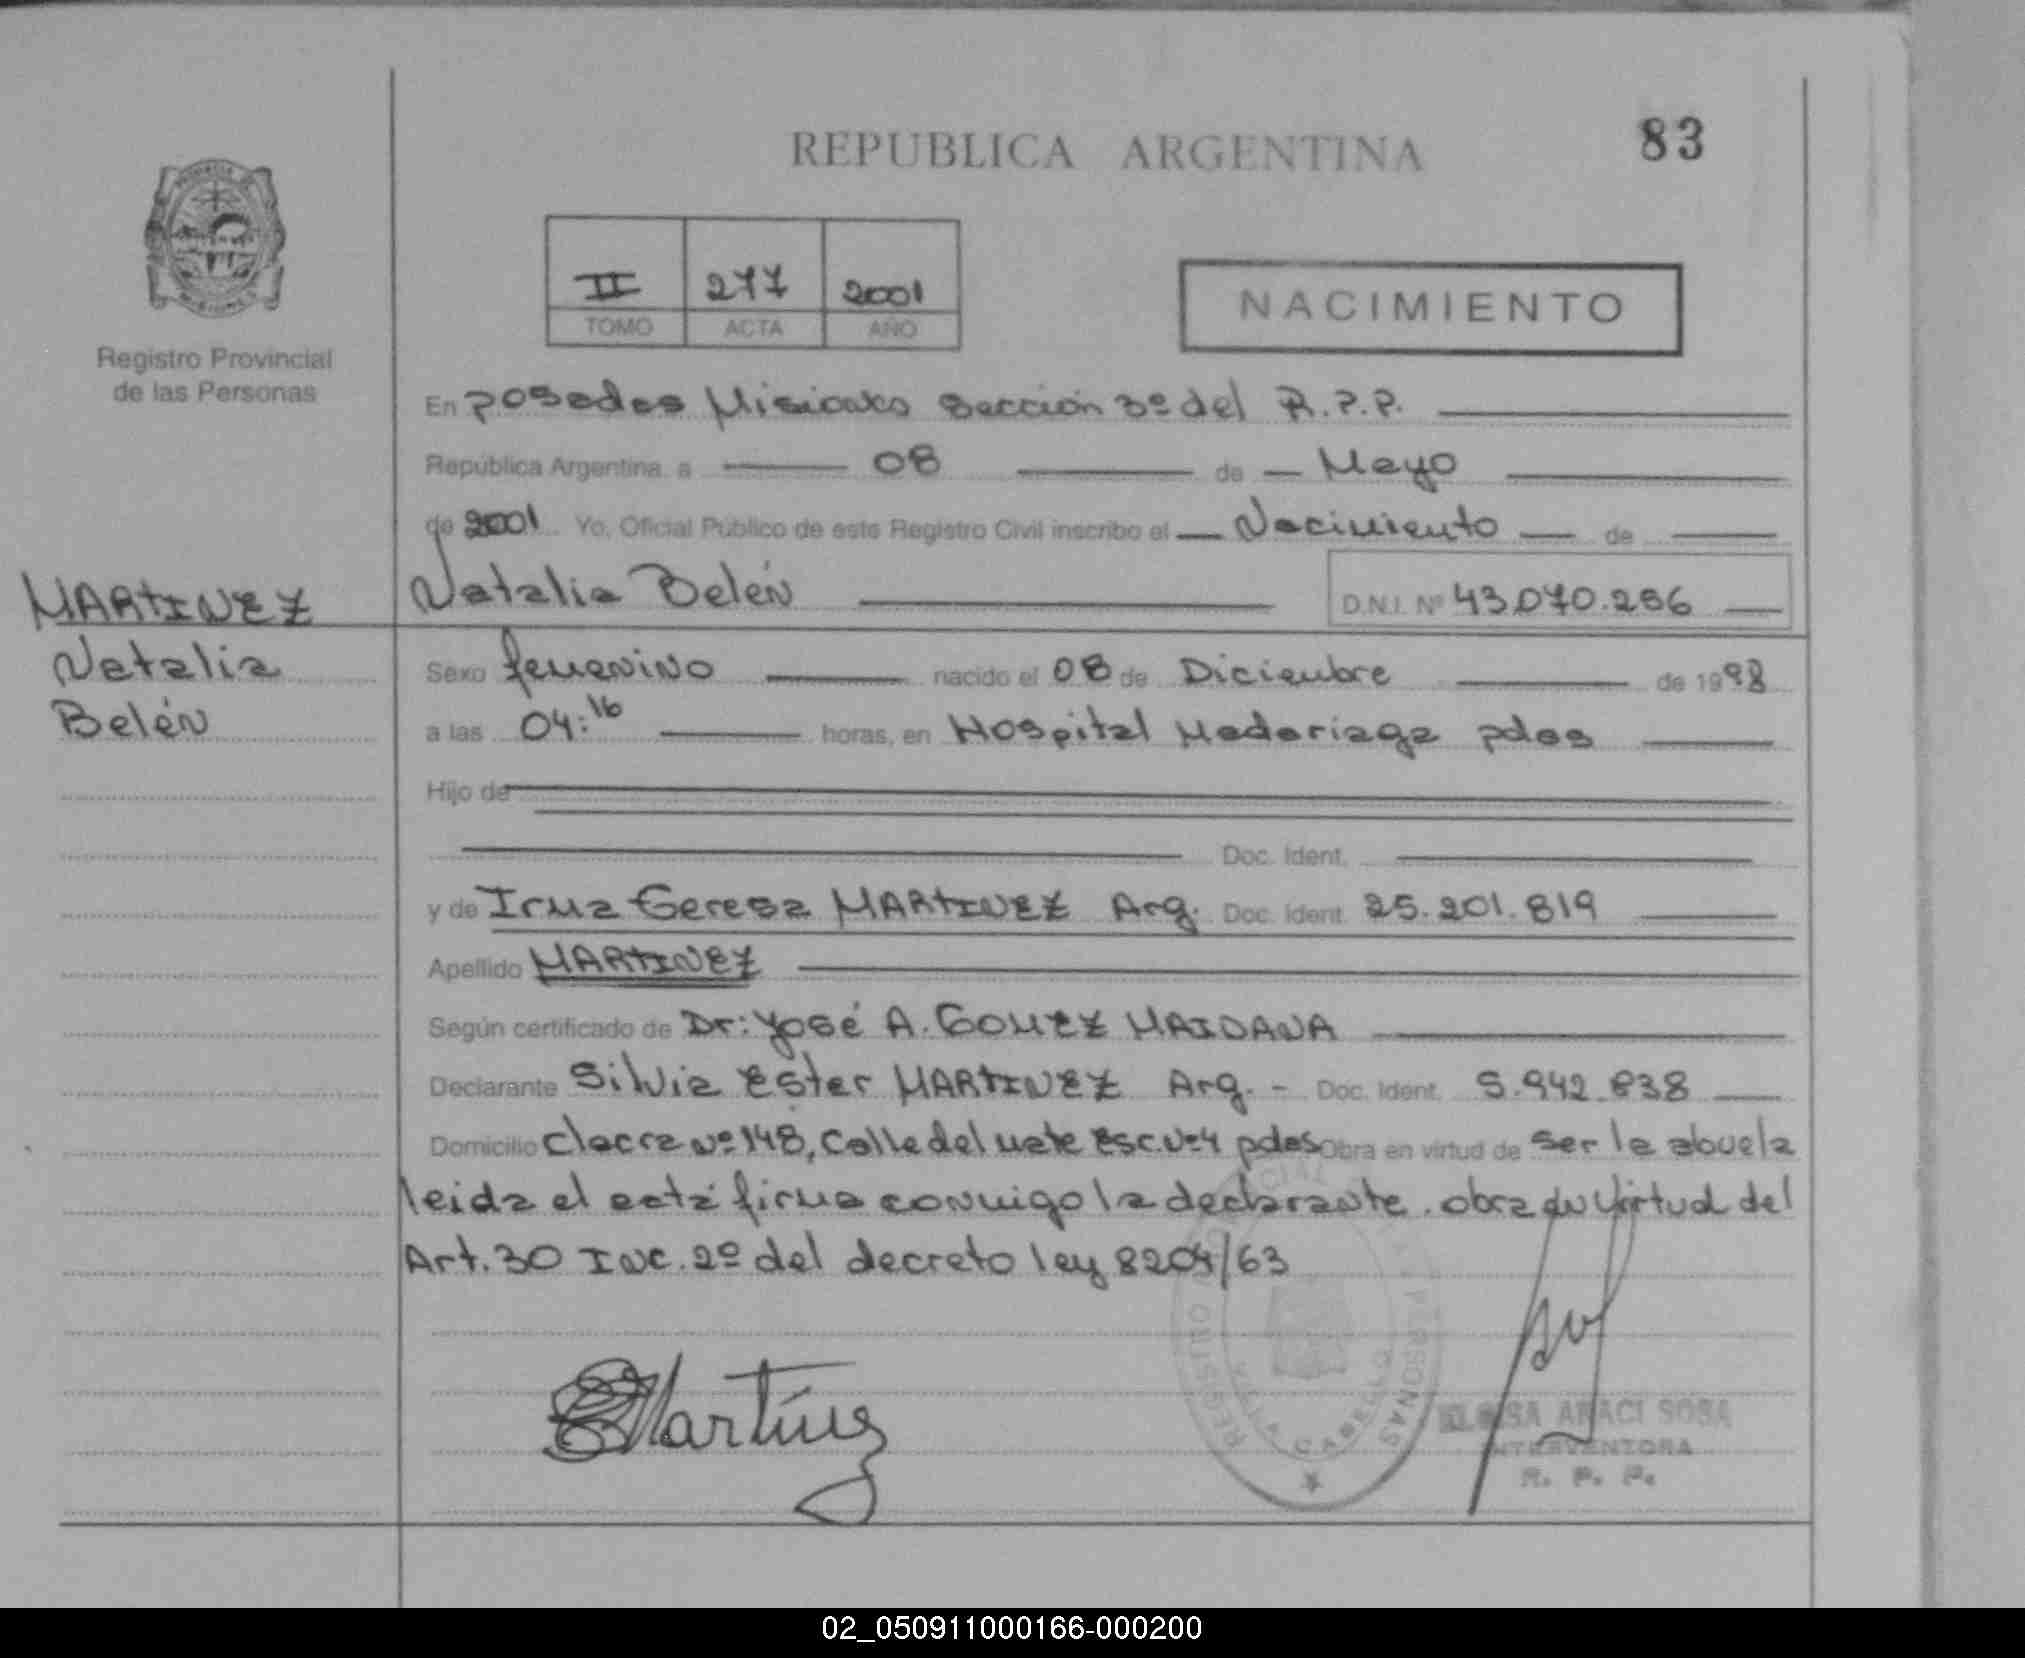 REPUBLICA ARGENTINA
83
Registro Provincial
de las Personas
II 277 2001
TOMO ACTA AÑO
NACIMIENTO
En Posadas Misiones Sección 3º del R.P.P.
República Argentina a 08 de Mayo
de 2001 Yo, Oficial Público de este Registro Civil inscribo el Nacimiento de
MARTINEZ
Natalia
Belén
Natalia Belén D.N.I. Nº 43.070.256
Sexo femenino nacido el 08 de Diciembre de 1998
a las 04:16 horas, en Hospital Madariaga pdas
Hijo de
Doc. Ident.
y de Irma Teresa MARTINEZ Arg. Doc. Ident. 25.201.819
Apellido MARTINEZ
Según certificado de Dr: José A. GOMEZ MAIDANA
Declarante Silvia Ester MARTINEZ Arg. - Doc. Ident. 5.942.838
Domicilio Chacra Nº 148, Calle del mate Esc. Nº 4 pdas Obra en virtud de ser la abuela
leida el acta firma conmigo la declarante. obra en virtud del
Art. 30 Inc. 2º del decreto ley 8204/63
Martínez
REGISTRO PROVINCIAL DE LAS PERSONAS
VILLA CABELLO
ELOISA ARACI SOSA
INTERVENTORA
R. P. P.
02_050911000166-000200